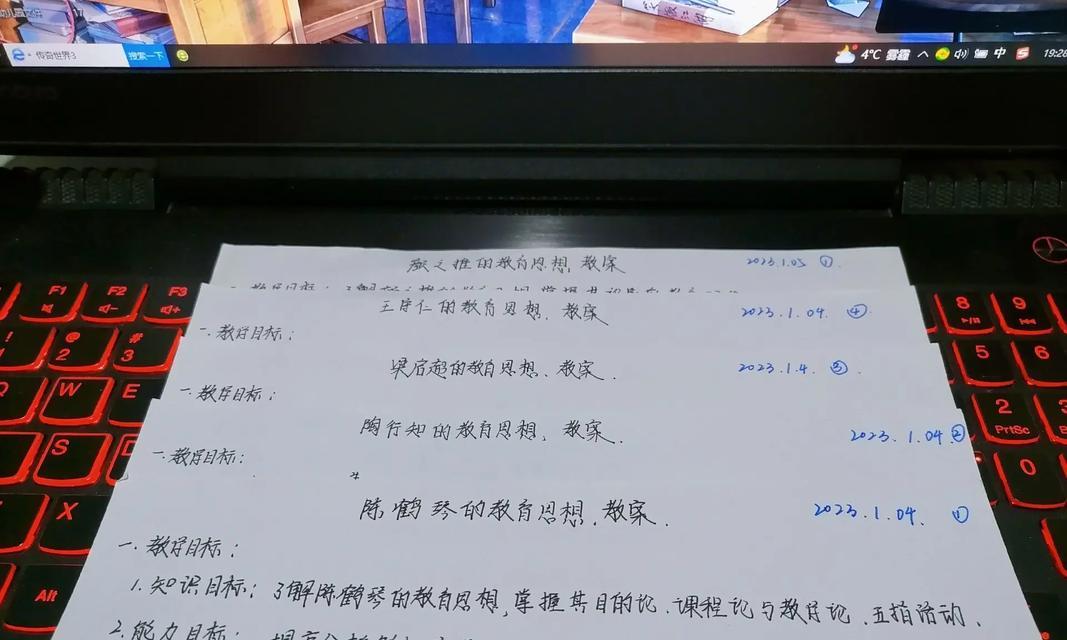 传奇世界3 搜索一下
4℃ 雾霾 中 19:28
颜之推的教育思想、教案 2023.1.05 ①.
王守仁的教育思想、教案 2023.1.04. ④.
一.教学目标:
梁启超的教育思想、教案. 2023.1.4. ③.
一.教学目标:
陶行知的教育思想、教案. 2023.1.04.②
一.教学目标:
陈鹤琴的教育思想、教案. 2023.1.04. ①
一.教学目标:
1.知识目标:了解陈鹤琴的教育思想,掌握其目的论、课程论与教学论、五指活动.
2.能力目标:
F1 F2 F3
8 9
! @ # 2 3
5 6
W E
2 PrtSc 3
S
0
X
Alt